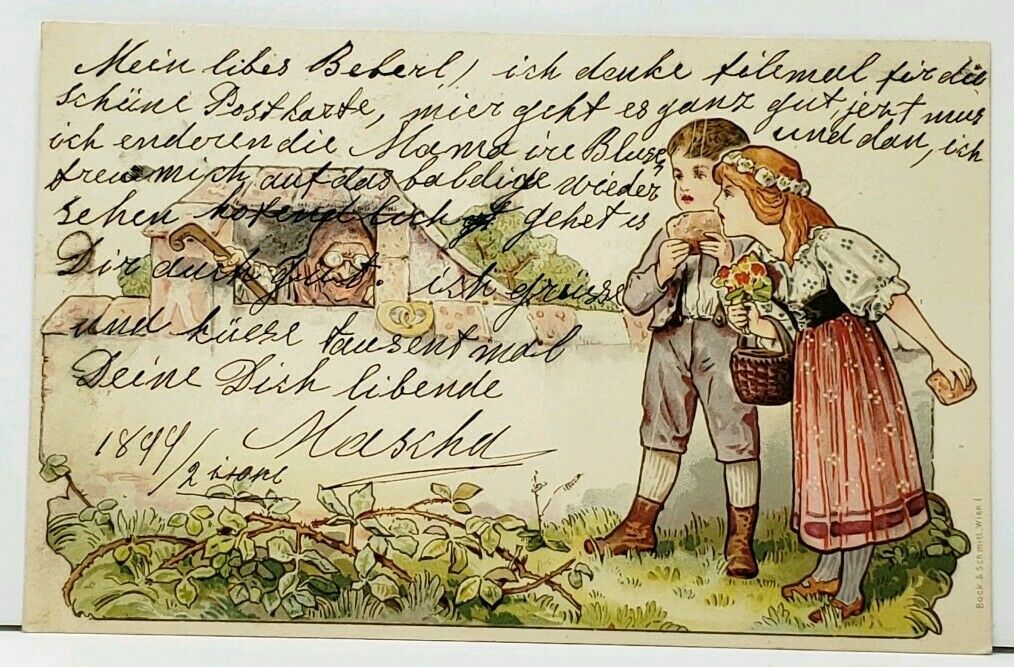 Mein libes Beberl, ich danke filemal für die
schüne Postkarte, mier geht es ganz gut, jezt mus
ich enderen die Mama ire Bluse, und dan, ich
freu mich auf das baldige wieder
sehen hofendlich gehet es
Dir auch gut. ich grüsse
und küsse tausent mal
Deine Dich libende
Mascha
1899/2
Back & Schmitt Wien I